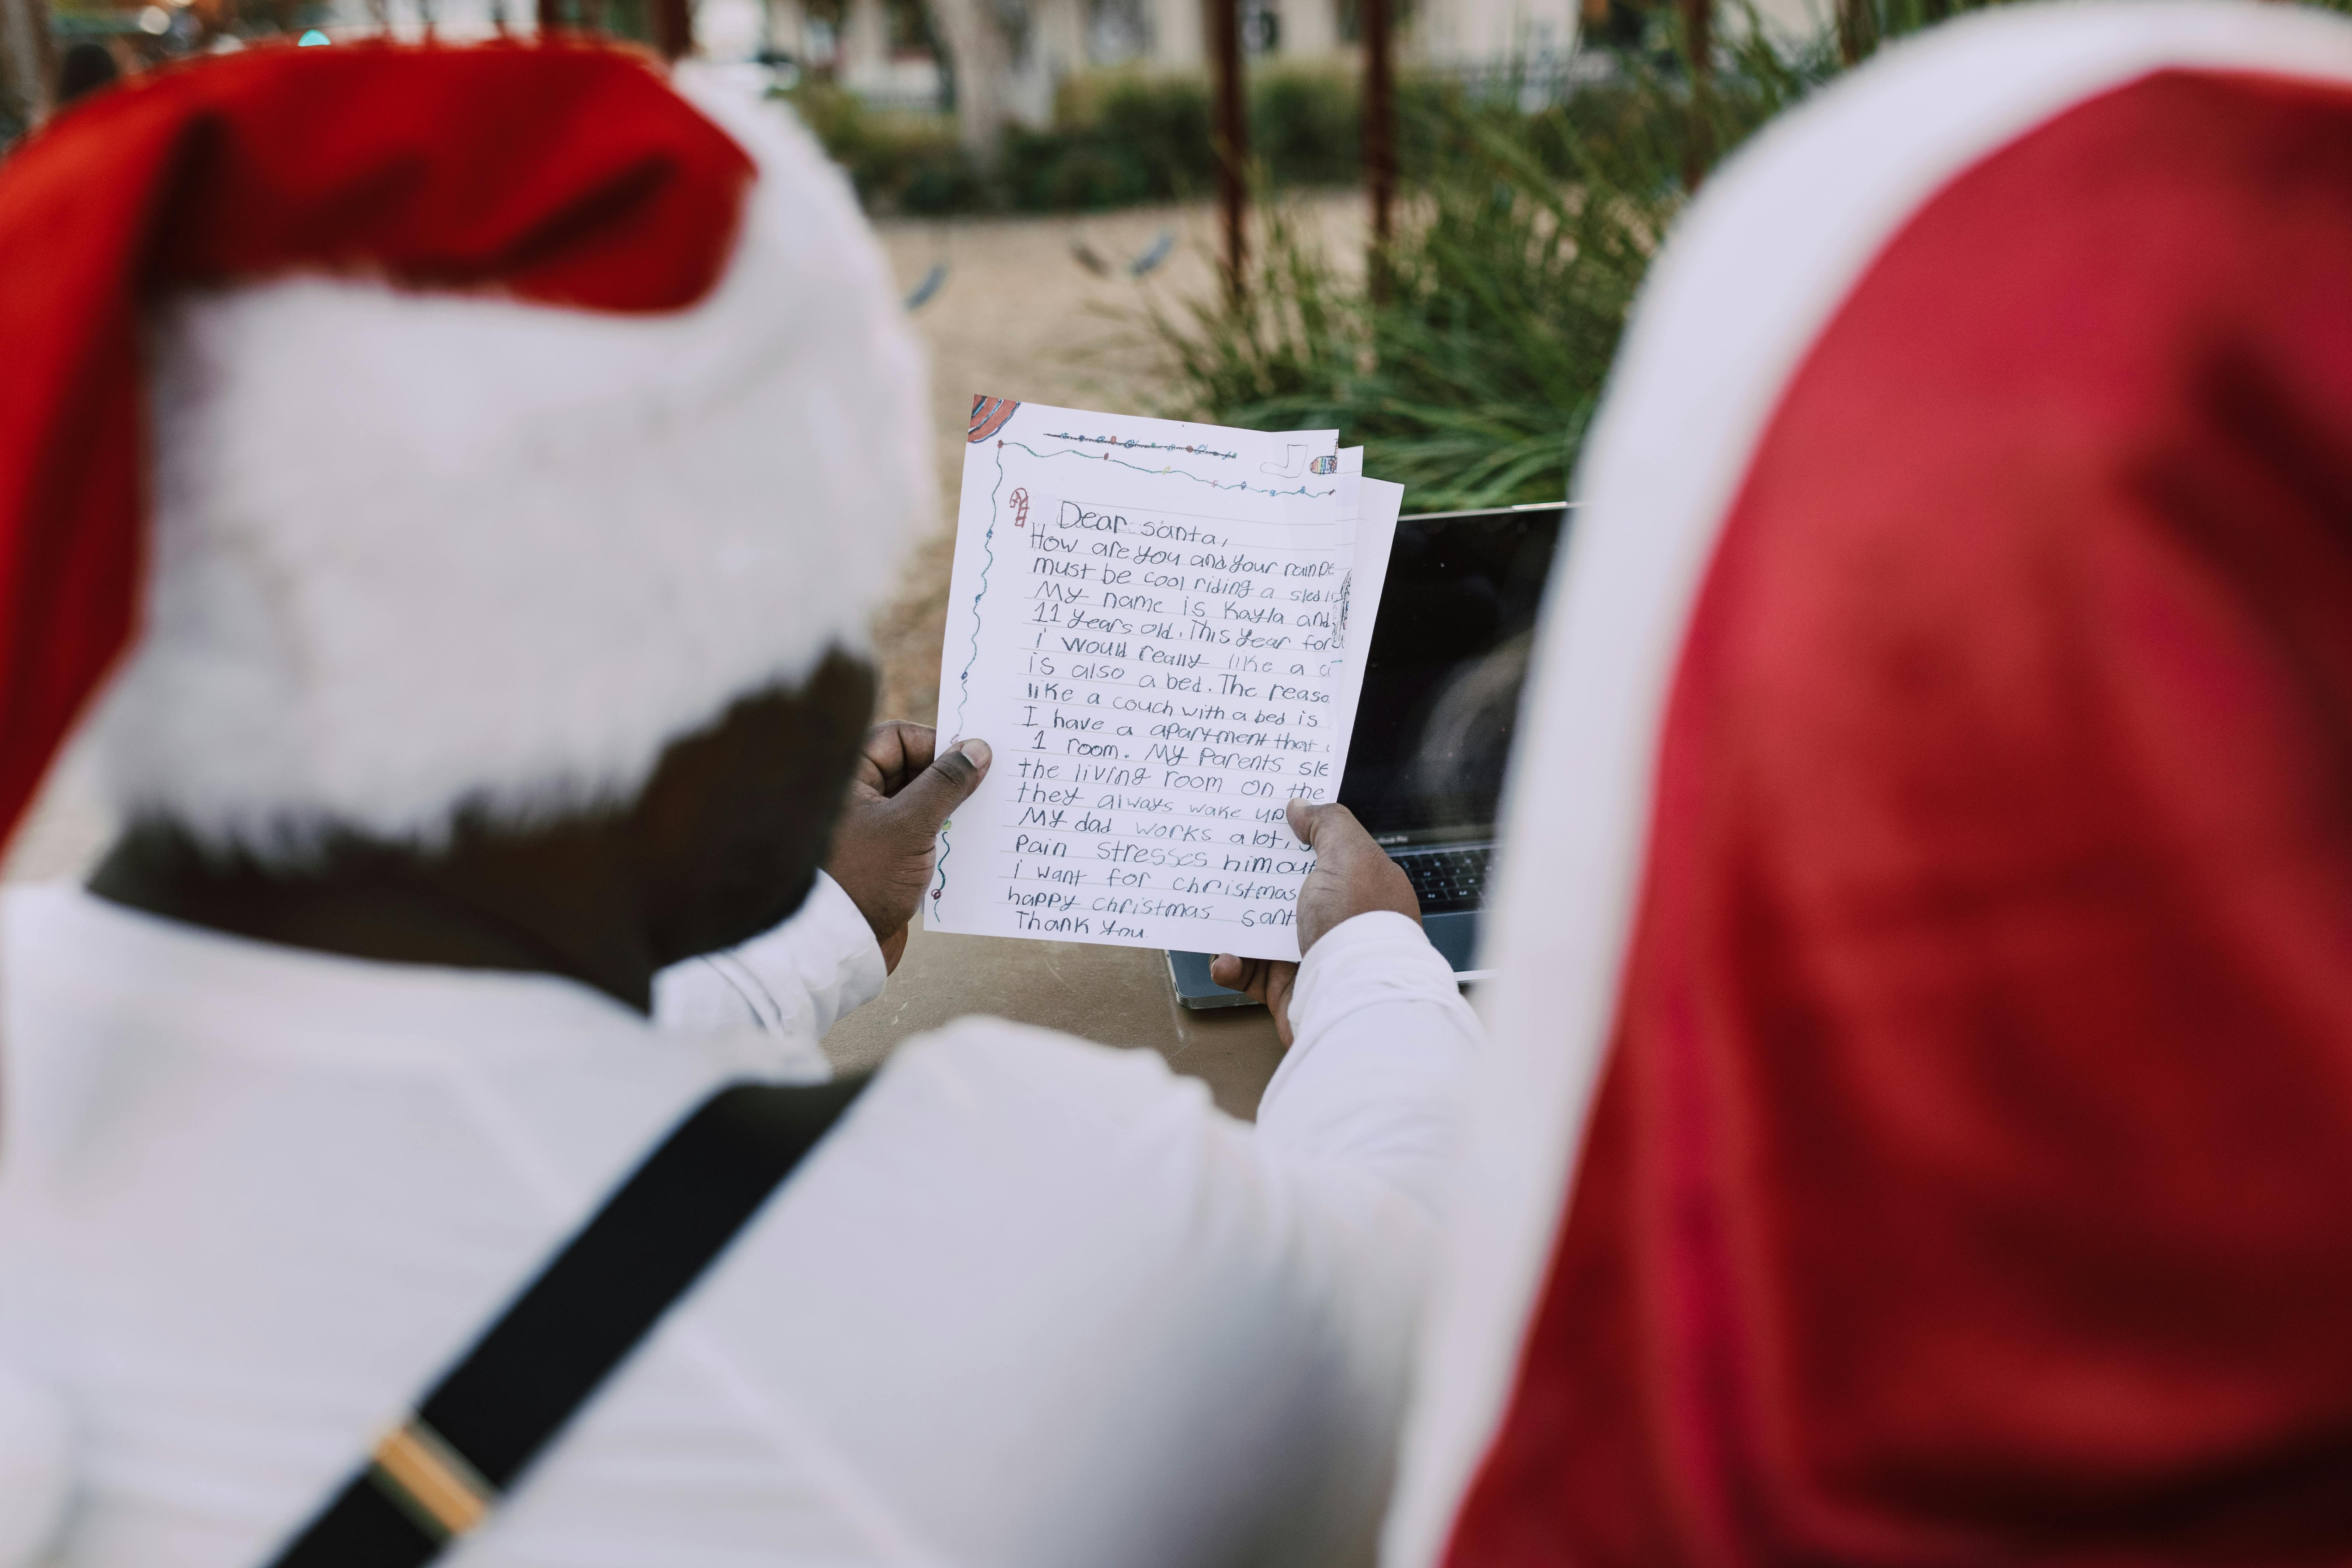 Dear santa,
How are you and your
must be cool riding a
My name is Kayla and
11 years old. This year for
i would really like a
is also a bed. The
like a couch with a bed is
I have a apartment that
1 room. My parents
the living room on the
they always wake up
My dad works a lot,
Pain stresses him out
i want for christmas
happy christmas
Thank you